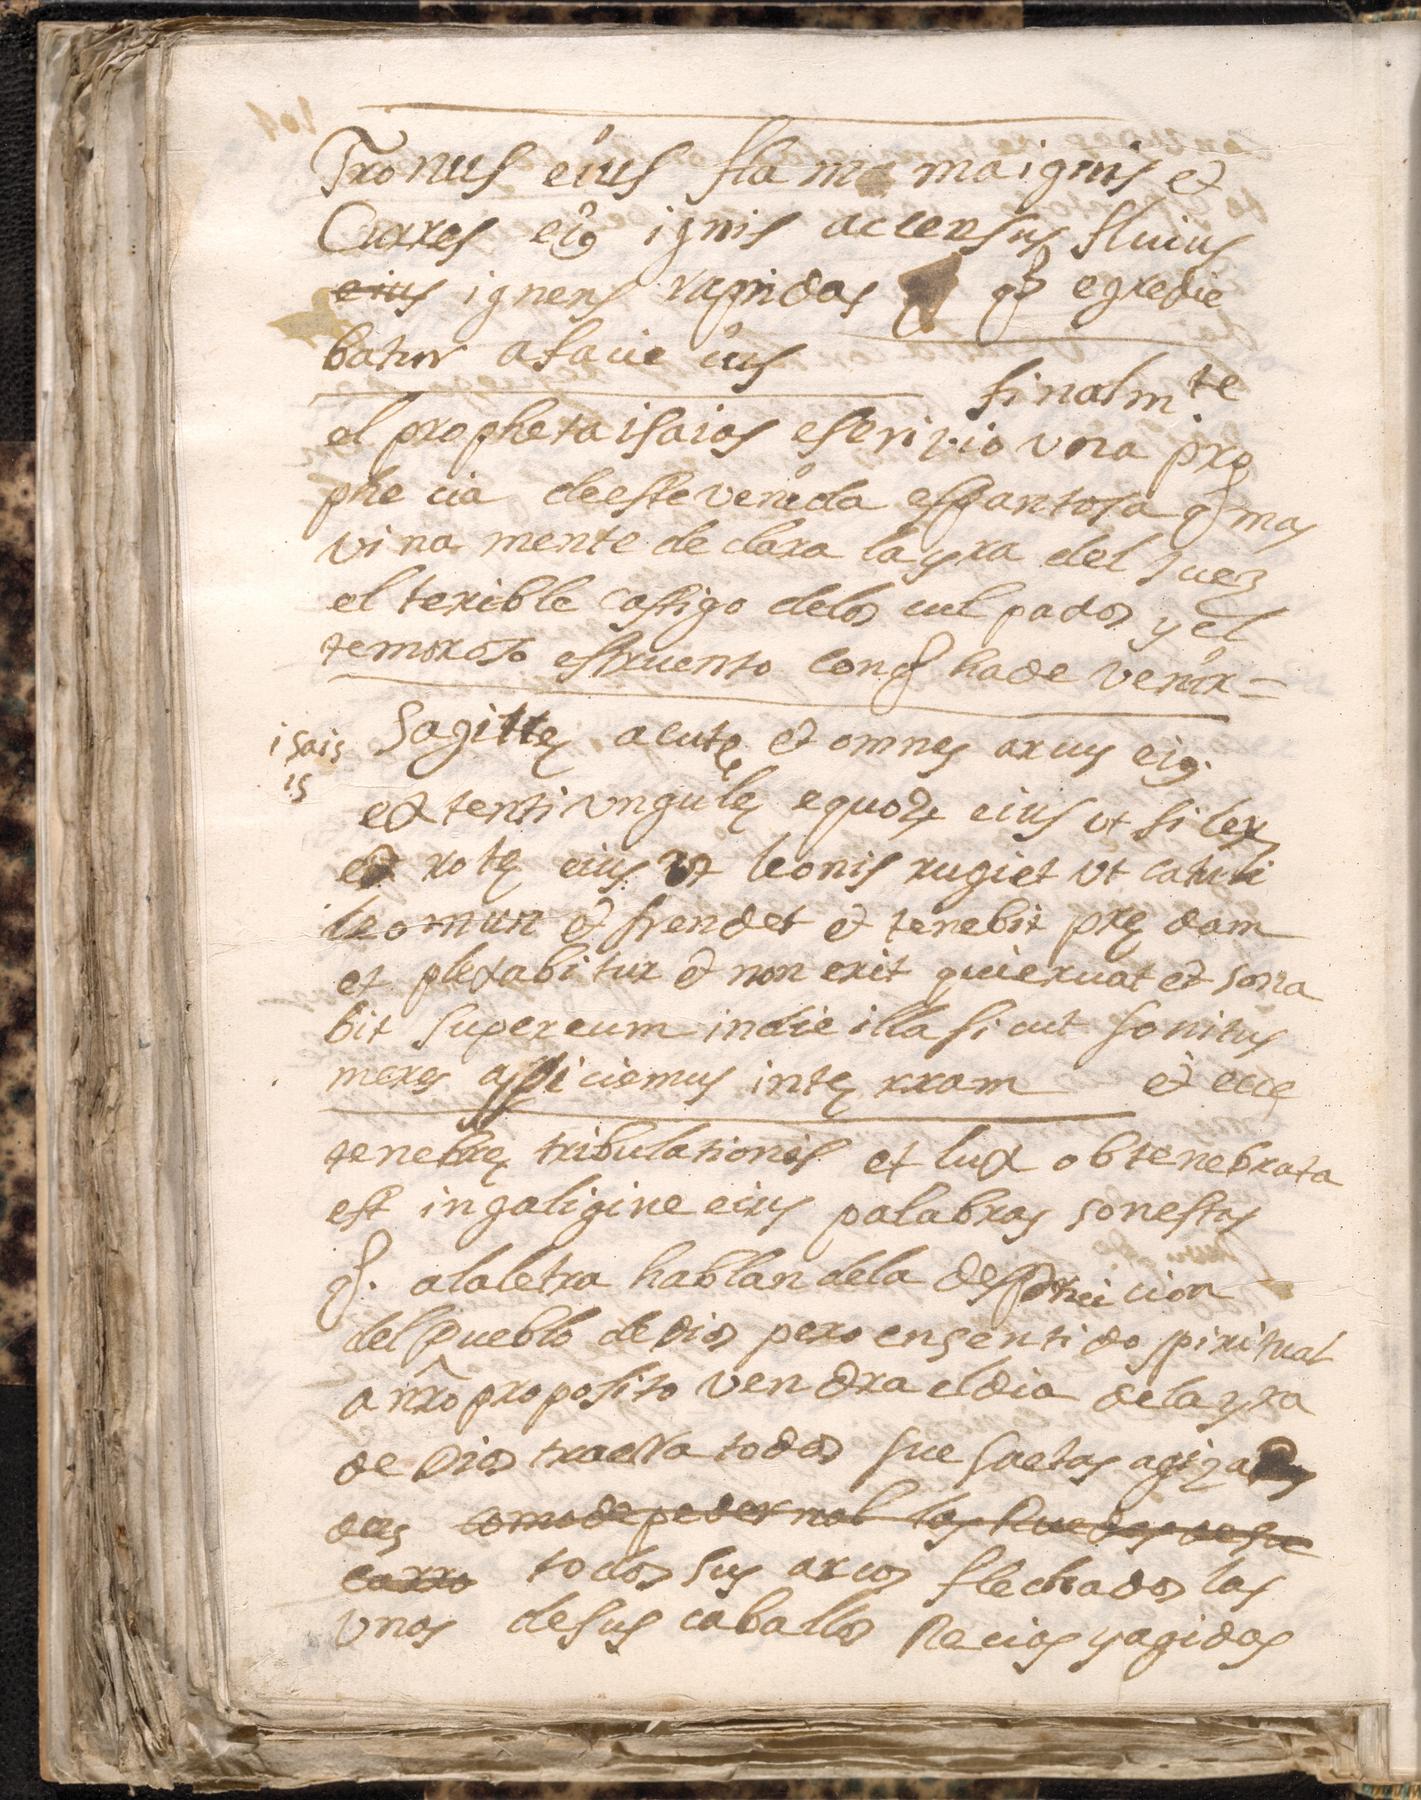 Tronus eius flam maignis et
Currus ei9 ignis accensus fluius
eius ignens rapidas q3 egredie
batur afacie eius
finalmte
el propheta isaias escrivio una pro
phe cia deeste venida espantosa q mas
vi na mente declara layra del Juez
el terible castigo delos cul pados y el
temoroso estruento conq hade venir=
isais
15
Sagittę acutę et omnes arcus ei9.
extenti ungulę equorũ eius ut silex
et rotę eius ut leonis rugiet ut catuli
leomun et frendet et tenebit prę dam
et plexabitur et non erit quieruat et sona
bit supereum indie illa si cut sonitus
meres aspiciemus intę rram et ecce
tenebrę tribulationis et lux obtenebrata
est ingaligine eius palabras sonestas
q. alaletra hablan dela cion
del pueblo dedios pero ensenti do spiritual
a nro proposito vendra eldia delayra
de Dios traera todas sue saetas
das comodepedernal las Ruedas desu
carro todos sus arcos flechados las
unas desus caballos Recias yagidas